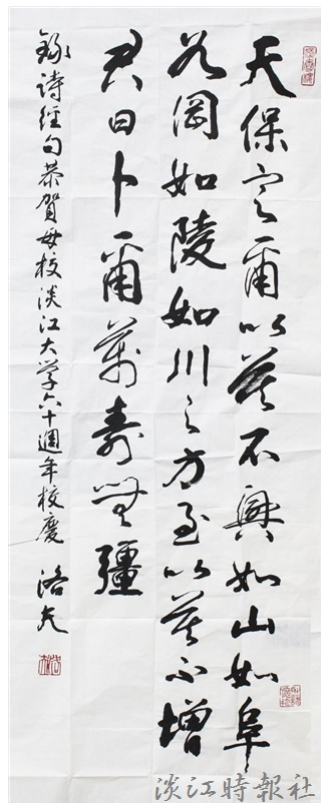 天保定爾以莫不興如山如阜
如岡如陵如川之方至以莫不增
君曰卜爾萬壽無疆
錄詩經句恭賀母校淡江大学六十週年校慶 洛夫
淡江時報社